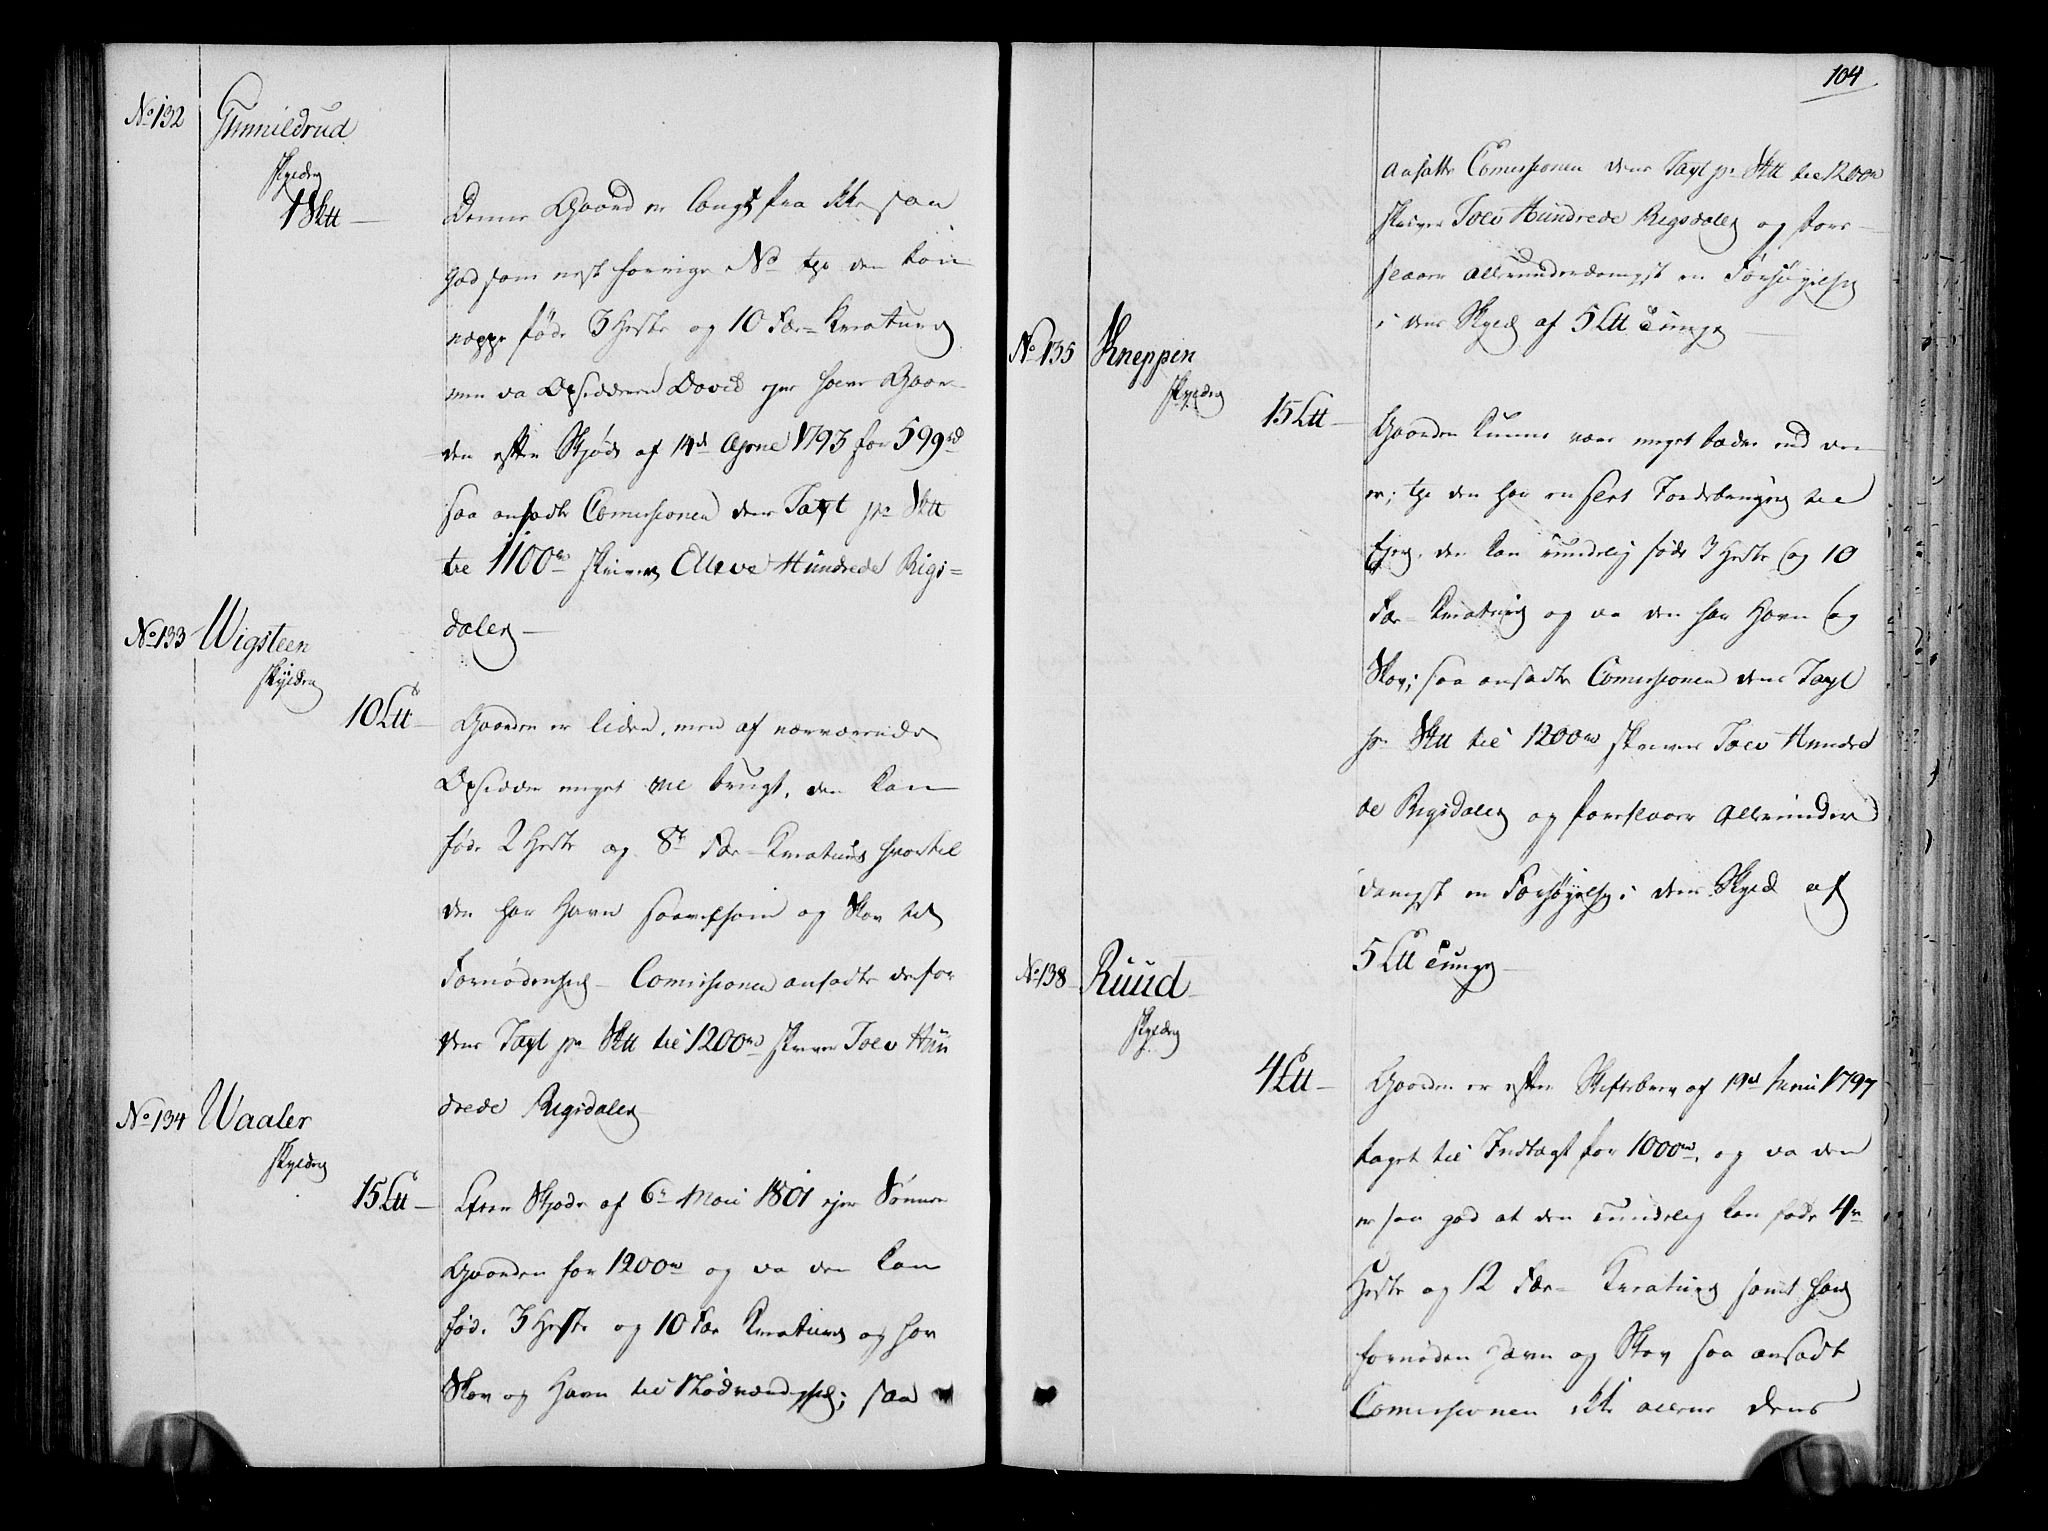 No 132 Gunnildrud
skylder
1 Sktt —
Denne Gaard er langt fra ikke saa
god som nest forrige No thi den kan
neppe føde 3 Heste og 10 Fæ-Kreature
men da Opsidderen David ejer hele Gaar
den efter Skjøde af 14de April 1793 for 599 rd
saa ansadte Comissionen dens Taxt pr Sktt
til 1100 rd skriver Elleve Hundrede Rigs=
daler —
No 133 Wigsteen
skylder
10 Ltt —
Gaarden er liden, men af nærværende
Opsidder meget vel brugt, den kan
føde 2 Heste og 8te Fæ-Kreature hvortil
den har Havn saavelsom og Skov til
Fornødenhed — Comissionen ansadte derfor
dens Taxt pr Sktt til 1200 rd skriver Tolv Hun
drede Rigsdaler
No 134 Waaler
skylder
15 Ltt —
Efter Skjøde af 6te Maii 1801 ejer
Gaarden for 1200 rd og da den kan
føde 3 Heste og 10 Fæ Kreature og har
Skov og Havn til Nødvendighed; saa
104
ansatte Comissionen dens Taxt pr Sktt til 1200 rd
skriver Tolv Hundrede Rigsdaler og fore
slaaer allerunderdanigst en Forhøyelse
i dens Skyld af 5 Ltt Tunge —
No 135 Kneppen
skylder
15 Ltt —
Gaarden kunne være meget bedre end den
er; thi den har en slet Jordsbruger til
Ejer, den kan rundelig føde 3 Heste og 10
Fæ-Kreature og da den har Havn og
Skov; saa ansadte Comissionen dens Taxt
pr Sktt til 1200 rd skriver Tolv Hundre
de Rigsdaler og foreslaaer Allerunder
danigst en Forhøyelse i dens Skyld af
5 Ltt Tunge —
No 138 Ruud —
skylder
4 Ltt —
Gaarden er efter Skiftebrev af 19de Junii 1797
taget til Indtægt for 1000 rd, og da den
er saa god at den rundelig kan føde 4re
Heste og 12 Fæ-Kreature samt har
fornøden Havn og Skov saa ansadte
Comissionen ikke allene dens